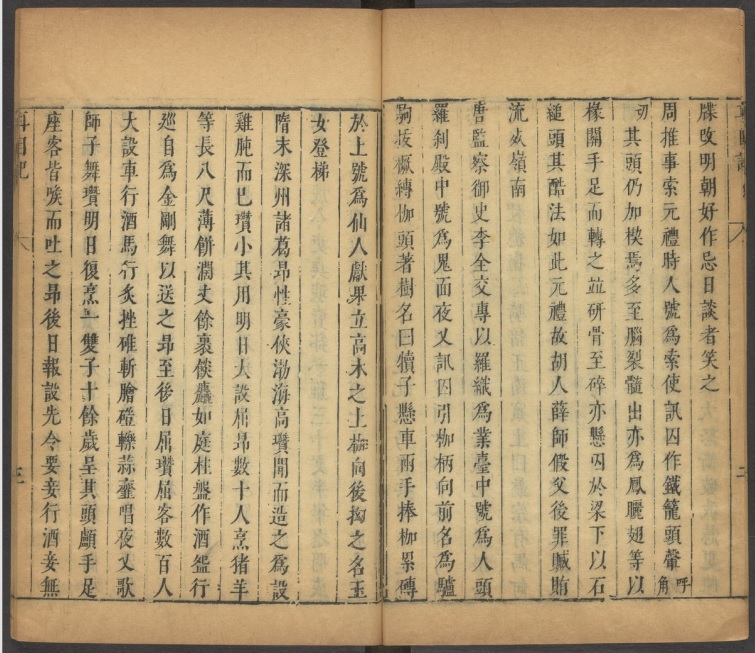 牒改明朝好作忌日談者笑之
周推事索元禮時人號為索使訊囚作鐵籠頭䪷呼角
切其頭仍加楔焉多至腦裂髓出亦為鳳曬翅等以
椽關手足而轉之並研骨至碎亦懸囚於梁下以石
縋頭其酷法如此元禮故胡人薛師假父後罪贓賄
流死嶺南
唐監察御史李全交專以羅織為業臺中號為人頭
羅刹殿中號為鬼面夜叉訊囚引枷柄向前名為驢
駒拔橛縛枷頭著樹名曰犢子懸車兩手捧枷累磚
於上號為仙人獻果立高木之上枷向後拗之名玉
女登梯
隋末深州諸葛昂性豪俠渤海高瓚聞而造之為設
雞肫而已瓚小其用明日大設屈昂數十人烹猪羊
等長八尺薄餅濶丈餘裹餤麤如庭柱盤作酒盌行
巡自為金剛舞以送之昂至後日屈瓚屈客數百人
大設車行酒馬行炙挫碓斬膾磑轢蒜虀唱夜叉歌
師子舞瓚明日復烹一雙子十餘歲呈其頭顱手足
座客皆喉而吐之昂後日報設先令要妾行酒妾無
耳目記